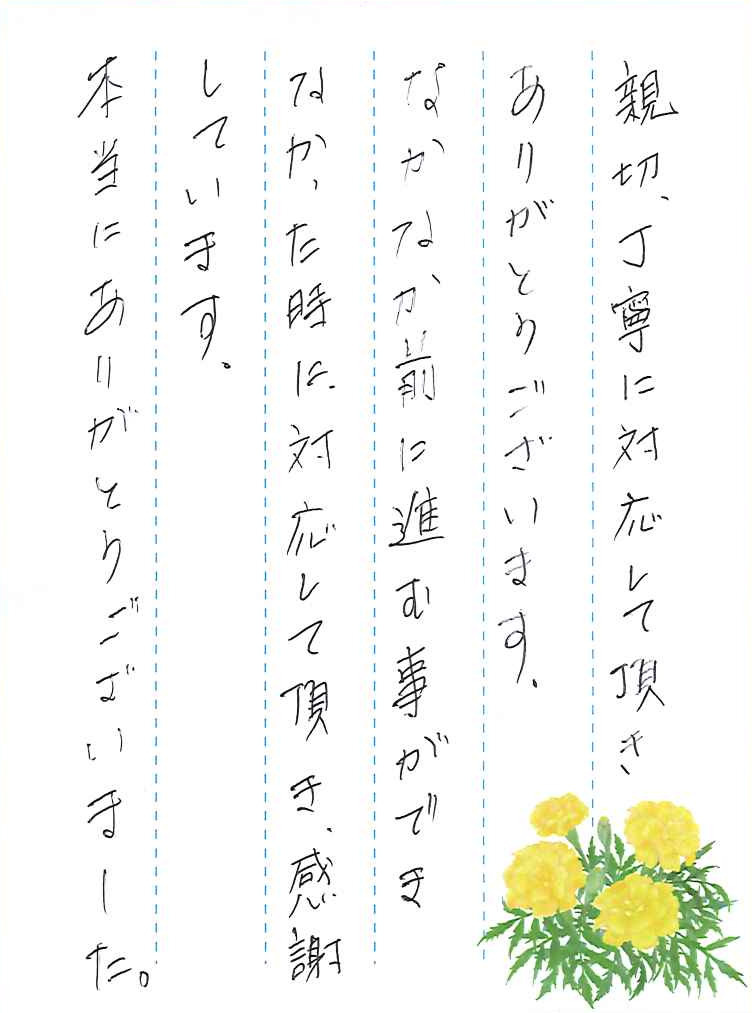 親切、丁寧に対応して頂き
ありがとうございます。
なかなか前に進む事ができ
なかった時に対応して頂き、感謝
しています。
本当にありがとうございました。